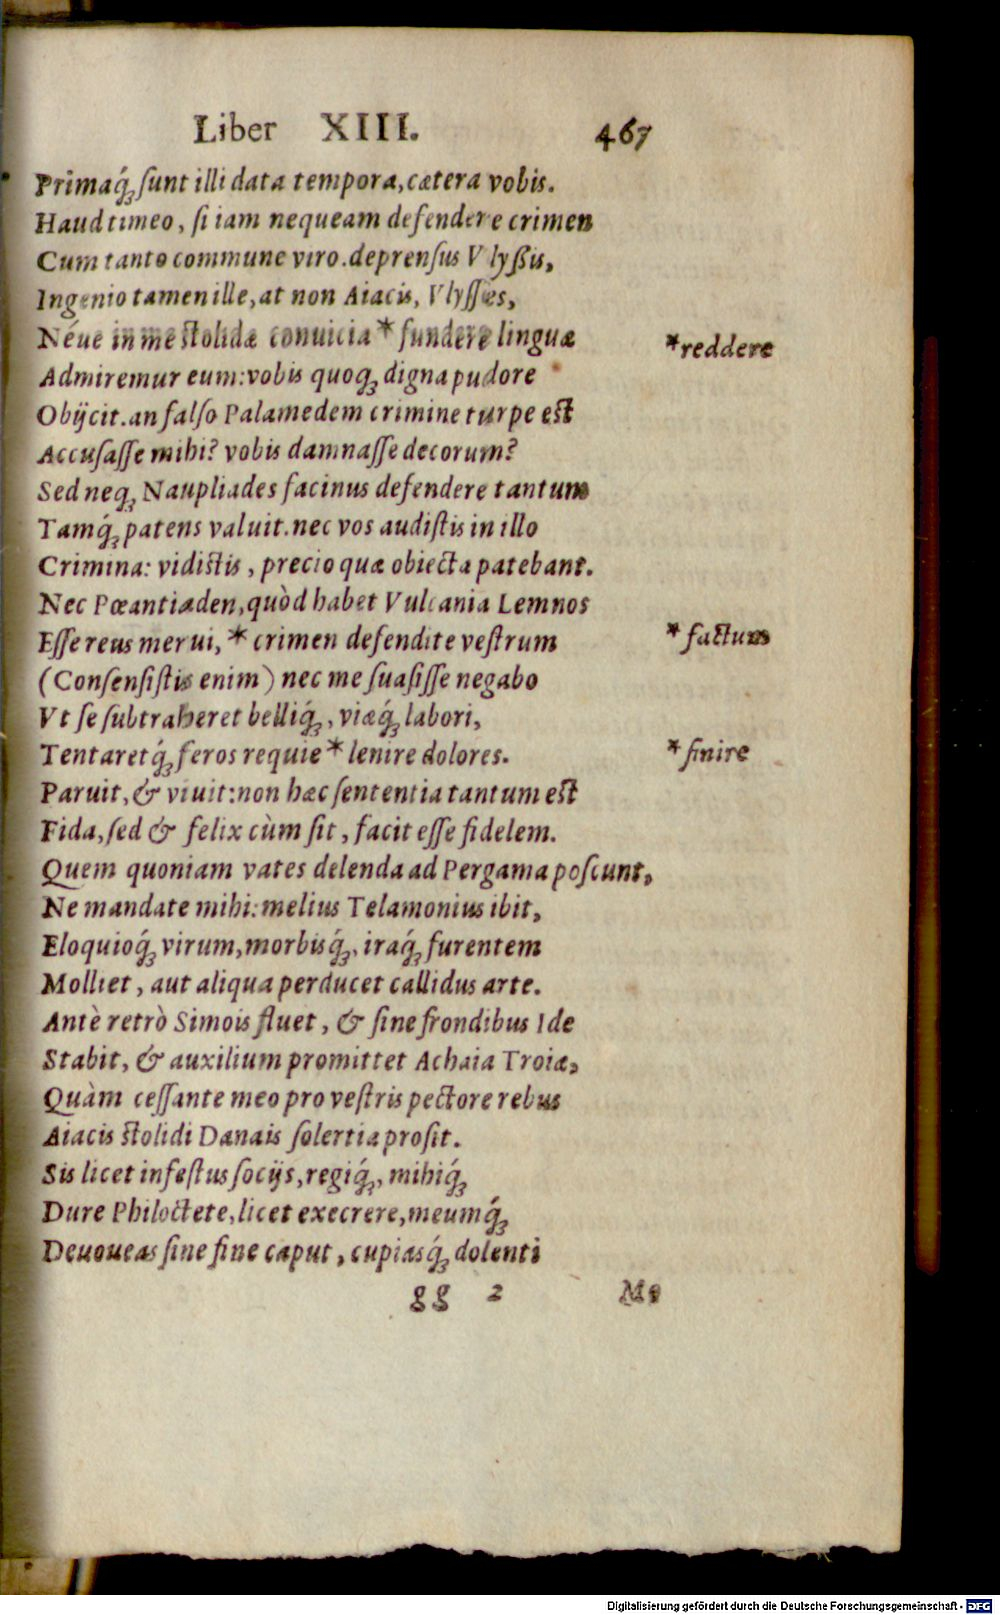 Liber XIII. 467
Primaq́; ſunt illi data tempora, cætera vobis.
Haud timeo, ſi iam nequeam defendere crimen
Cum tanto commune viro. deprenſus Vlyſſis,
Ingenio tamen ille, at non Aiacis, Vlyſſes,
Néue in me ſtolidæ conuicia * fundere linguæ *reddere
Admiremur eum: vobis quoq; digna pudore
Obijcit. an falſo Palamedem crimine turpe eſt
Accuſaſſe mihi? vobis damnaſſe decorum?
Sed neq; Naupliades facinus defendere tantum
Tamq́; patens valuit. nec vos audiſtis in illo
Crimina: vidiſtis, precio quæ obiecta patebant.
Nec Pœantiaden, quòd habet Vulcania Lemnos
Eſſe reus merui, * crimen defendite veſtrum * factum
(Conſenſiſtis enim) nec me ſuaſiſſe negabo
Vt ſe ſubtraheret belliq́;, viæq́; labori,
Tentaretq́; feros requie * lenire dolores. * finire
Paruit, & viuit: non hæc ſententia tantum eſt
Fida, ſed & felix cùm ſit, facit eſſe fidelem.
Quem quoniam vates delenda ad Pergama poſcunt,
Ne mandate mihi: melius Telamonius ibit,
Eloquioq́; virum, morbisq́;, iraq́; furentem
Molliet, aut aliqua perducet callidus arte.
Antè retrò Simois fluet, & ſine frondibus Ide
Stabit, & auxilium promittet Achaia Troiæ,
Quàm ceſſante meo pro veſtris pectore rebus
Aiacis ſtolidi Danais ſolertia proſit.
Sis licet infeſtus ſocijs, regiq́;, mihiq́;
Dure Philoctete, licet execrere, meumq́;
Deuoueas ſine fine caput, cupiasq́; dolenti
gg 2 Me
Digitalisierung gefördert durch die Deutsche Forschungsgemeinschaft - DFG